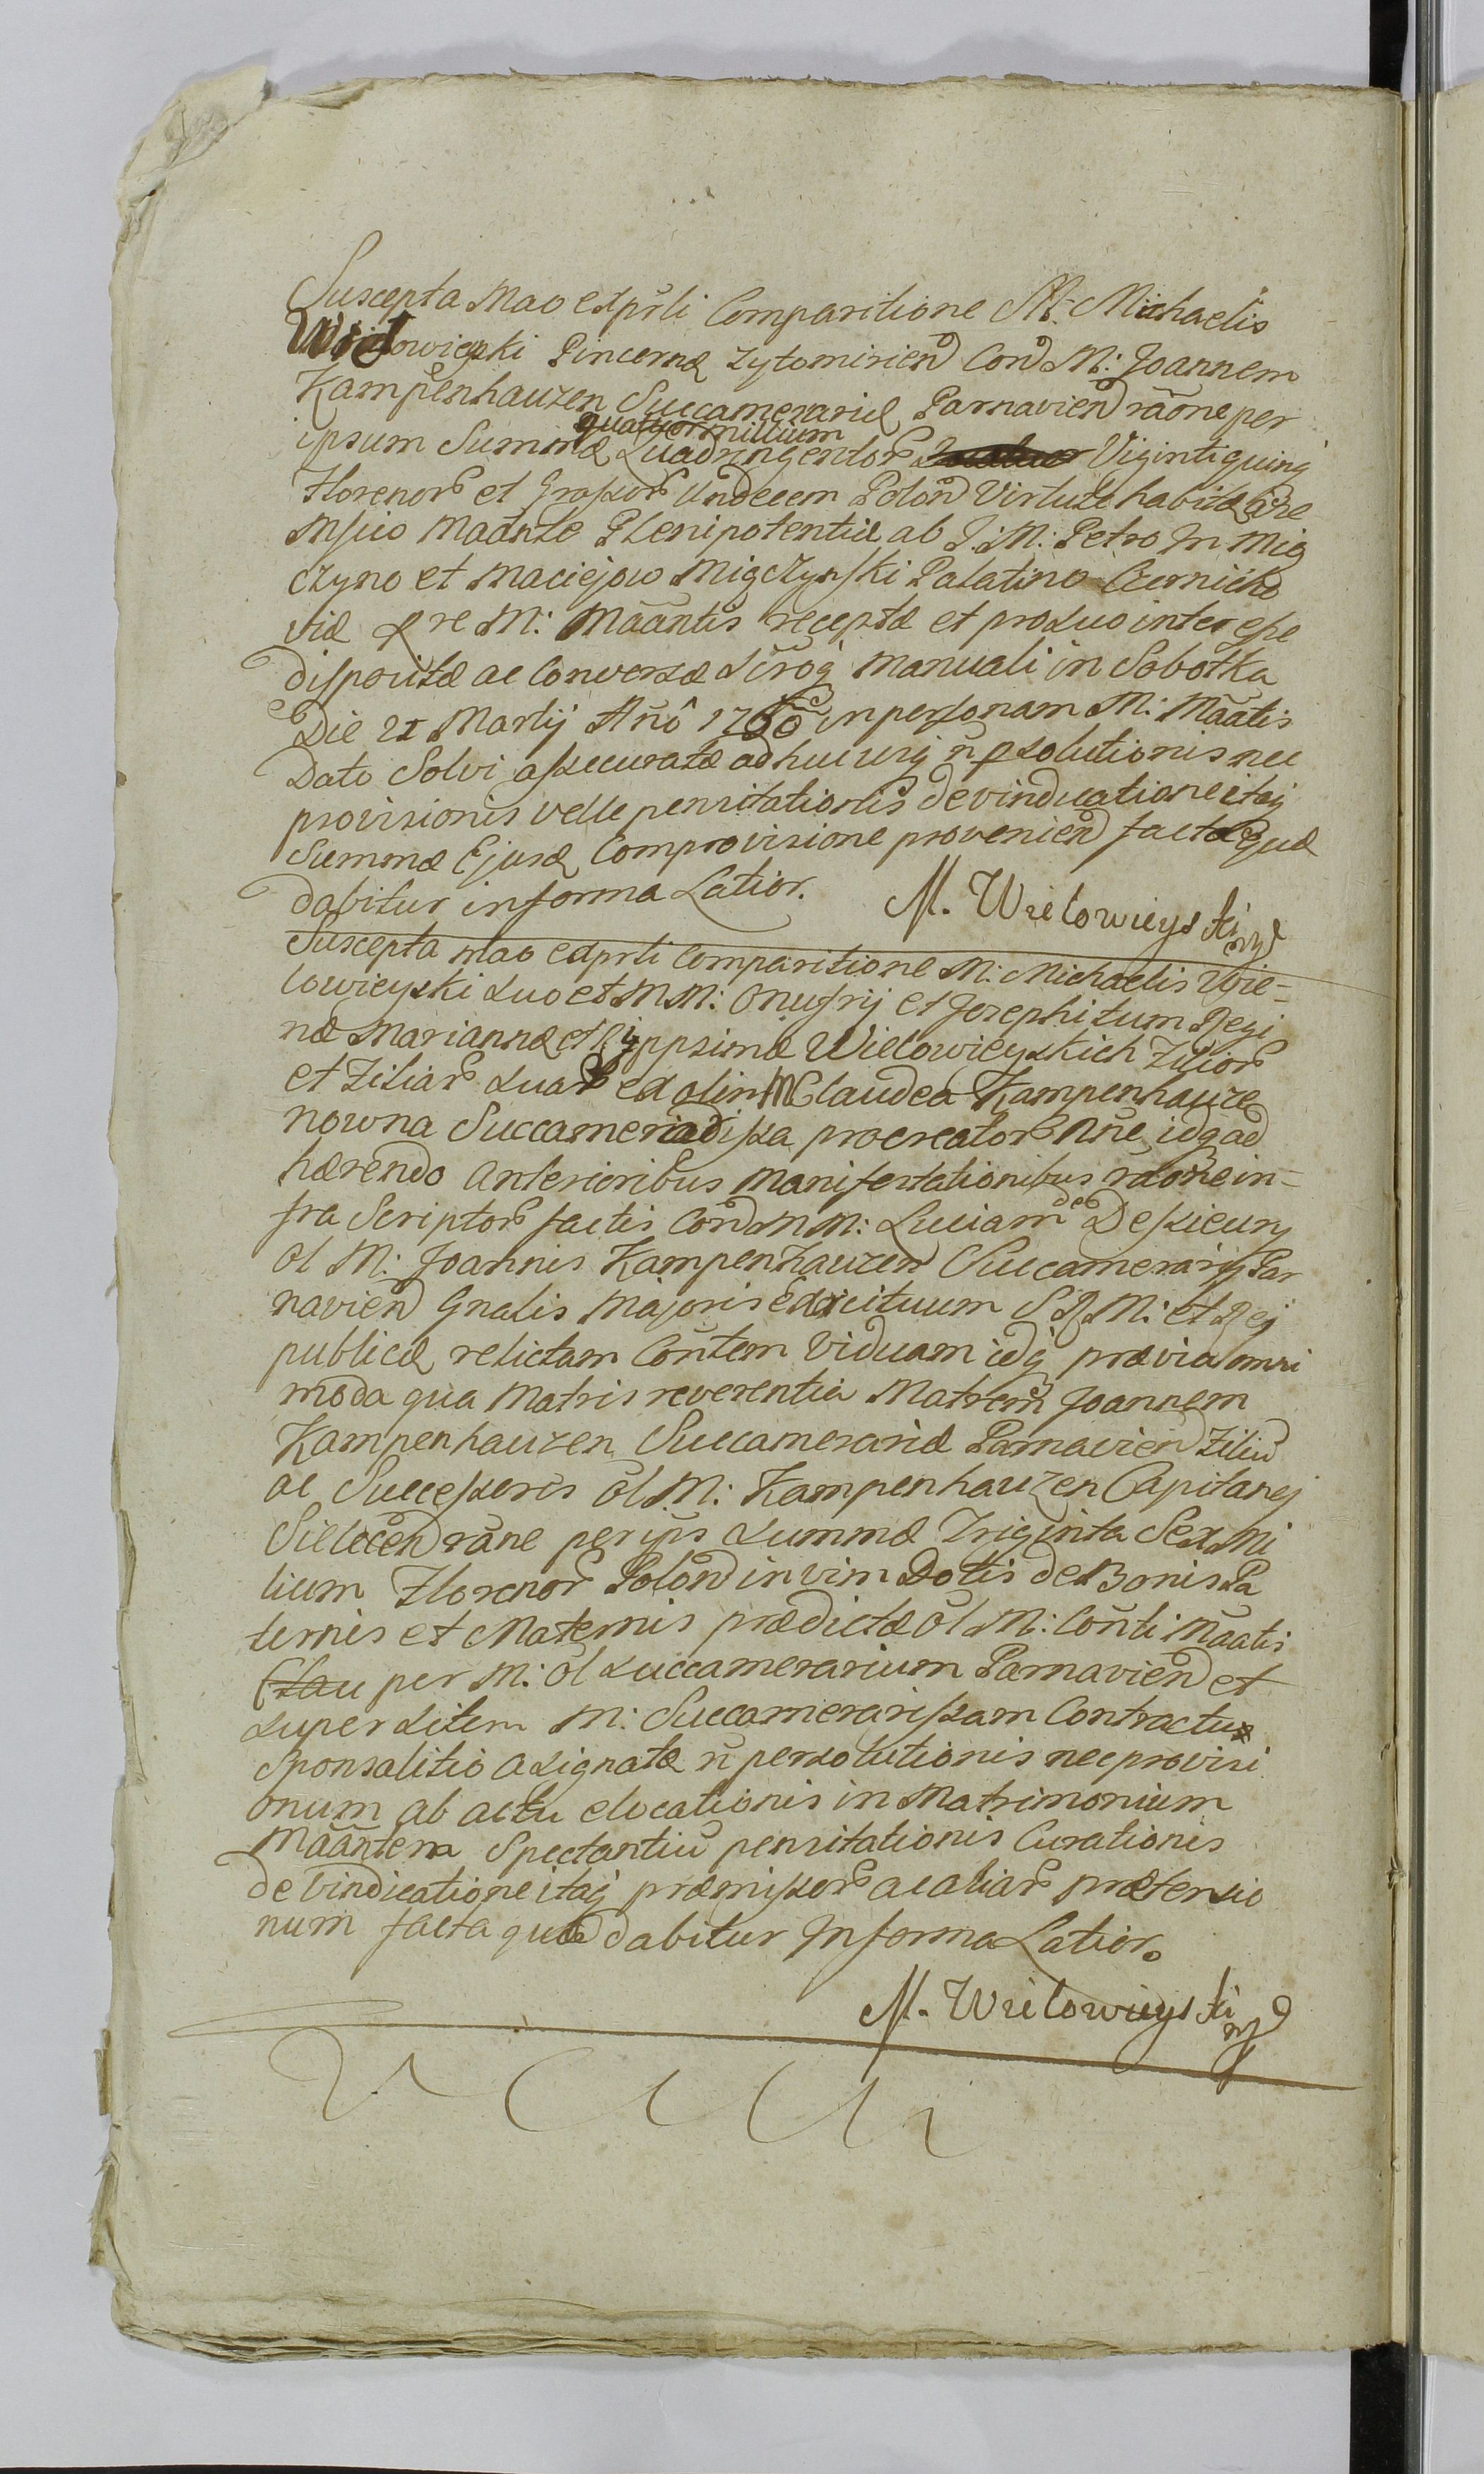 Suscepta Mao exprśti Comparitione M: Michaelis
Wielowieyski Pincernæ Zytomirien Con M: Joannem
Kampenhauzen Succamerarid Parnavien rãone per
quatuor millium
ipsum Summæ Quadringentor Viginti quinq
Florenor et Grossor Undecem Polon Virtute habitæ
Plenipotentiæ ab J: M: Petro In Mią
czyno et Maciejow Miączynski Palatino Czernicho
viæ M: Mããntis receptæ et pro suo interesse
dispositæ ac Conversæ Scrog manuali in Sobotka
Die 21 Martij Añô 1760 in personam M: Mããtis
Dato Solvi assecuratæ ad hucusq ñ psolutionis nec
provisionis velle pensitationis de vindicatione itaq
Summæ Ejusd Comprovisione provenien facta quæ
dabitur in forma Latior.
M. Wielowieyski mp
Suscepta Mao exprśti Comparitione M: Michaelis Wie=
lowieyski suo et M M: Onufrij et Josephi tum Regi
næ Mariannæ et Wielowieyskich Filior
et Filiar suar ex olim M Claudea Kampenhauze
nowna Succameradissa procreator Nñe idq ad
hærendo anterioribus Manifestationibus rãone in=
fra Scriptor factis Con M M: Luciam de Dessieury
ol M: Joannis Kampenhauzen Succamerarij Par
navien Gnalis Majoris Exercituum S R M: et Rei
publicæ relictam Coñtem Viduam idq prævia omni
moda qua Matris reverentia Matrem Joannem
Kampenhauzen Succamerarid Parnavien Filiũ
ac Successores ol M: Kampenhauzen Capitanej
rãne per ips summæ Triginta Sex Mi
lium Florenor Polon in vim Dotis de Bonis Pa
ternis et Maternis prædictæ ol M: Coñti Mããtis
Clau per M: ol Succamerarium Parnavien et
superstitem M: Succamerarissam Contractu
Sponsalitio assignatæ ñ persolutionis nec provisi
onum ab actu elocationis in Matrimonium
Mããntem Spectantiũ pensitationis Curationis
de vindicatione itaq præmissor ac aliar prætensio
num facta quæ dabitur In forma Latior.
M. Wielowieyski mp